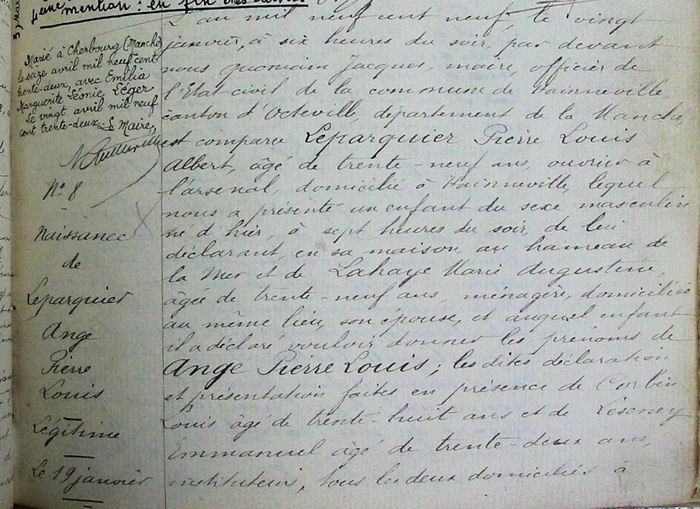 mention : en fin des
Marié à Cherbourg (Manche)
le seize avril mil neuf cent
trente-deux, avec Emilia
Marguerite Léonie Léger
Le vingt avril mil neuf
cent trente-deux. Le Maire,
N° 8
Naissance
de
Leparquier
Ange
Pierre
Louis
Légitime
Le 19 janvier
L'an mil neuf cent neuf, le vingt
janvier, à six heures du soir, par devant
nous Jacques, maire, officier de
l'Etat-civil de la commune de Hainneville
canton d'Octeville, département de la Manche,
est comparu Leparquier Pierre Louis
Albert, âgé de trente-neuf ans, ouvrier à
l'arsenal domicilié à Hainneville, lequel
nous a présenté un enfant du sexe masculin
né d'hier, à sept heures du soir, de lui
déclarant, en sa maison, au hameau de
la Mer et de Lahaye Marie Augustine,
âgée de trente-neuf ans, ménagère, domiciliée
au même lieu, son épouse, et auquel enfant
il a déclaré vouloir donner les prénoms de
Ange Pierre Louis ; les dites déclaration
et présentation faites en présence de Corbin
Louis âgé de trente-huit ans et de
Emmanuel âgé de trente-deux ans,
instituteurs, tous les deux domiciliés à